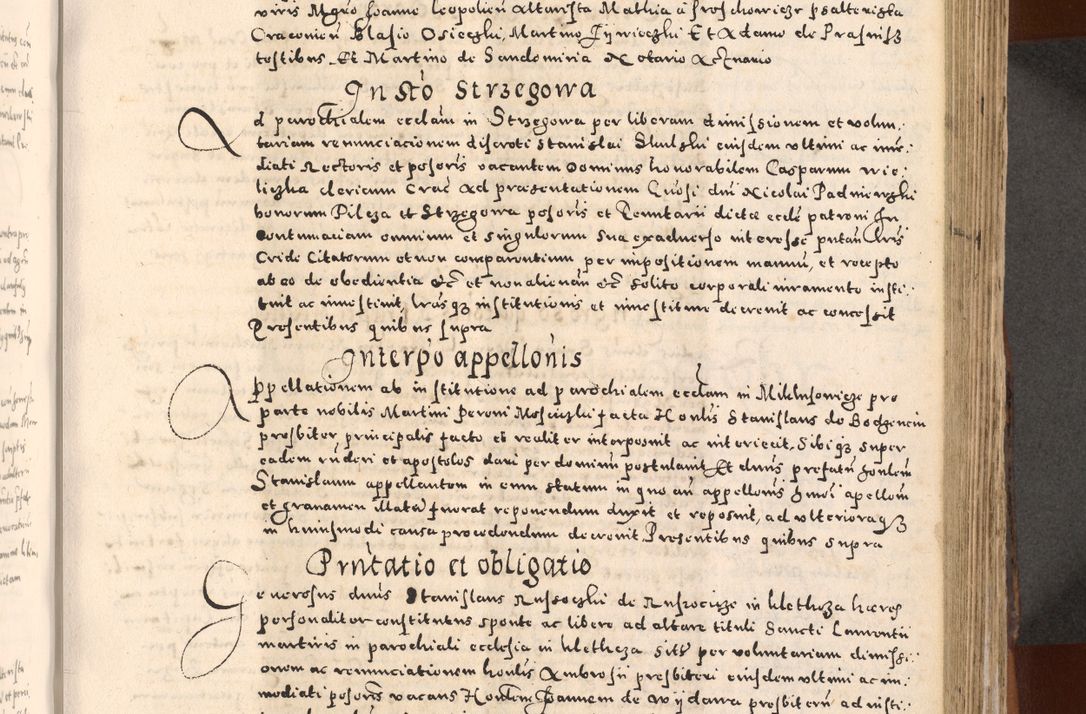 viris Mgro Joanne Leopolien Altarista Mathia a Proschowicze psalterista
Cracovien Blasio Osieczki, Martino Zywieczki Et Adamo de Prasnisz
tostibus Et Martino de Sandomiria Notario Actuario
In Sto Strzegowa
Ad parochialem ecclam in Strzegowa per liberam dimissionem et volun:
tariam renunciacionem discreti Stanislai ejusdem ultimi ac im:
diati Rectoris et posoris vacantem Dominus honorabilem Casparum Wie:
liczka clericum Crac Ad praesentationem Gnosi dni Nicolai Padniewzki
bonorum Pilcza et Strzegowa posoris et Tenutarii dictae eccle patroni In
contumaciam omnium et singulorum sua exadverso interesse putan
Cride Citatorum et non comparentium per impositionem manuu, et recepto
ab eo de obedientia Etc et non alienan Etc solito corporali iuramento insti:
tuit ac investivit, lras qz institutionis et investiturae decrevit ac concessit
Presentibus quibus supra
Interpo appellonis
Appellationem ab institutione ad parochialem ecclam in pro
parte nobilis Martini facta Honlis Stanislaus de Bodzencin
presbiter, principalis facto et realiter interposuit ac interiecit, sibi qz super
eadem et apostolos dari per dominum postulavit Et dnus prefatu honlem
Stanislaum appellantem in eum statum in quo an appellonis hmoi apellom
et gravamen illatu fuerat reponendum duxit et reposuit, ad ulteriora qz
in huiusmodi causa procedendum decrevit Presentibus quibus supra
Prntatio et obligatio
Generosus dnus Stanislaus de in Kletheza haeres
personaliter constitutus sponte ac libere ad altare tituli Sancti Laurentii
martiris in parochiali ecclesia in Kletheza sitt per voluntariam dimissi:
onem ac renunciationem honlis Ambrosii presbiteri eiusdem ultimi ac im:
mediati posoris vacans Honlem Joannem de Wydawa presbiteru ad insti: